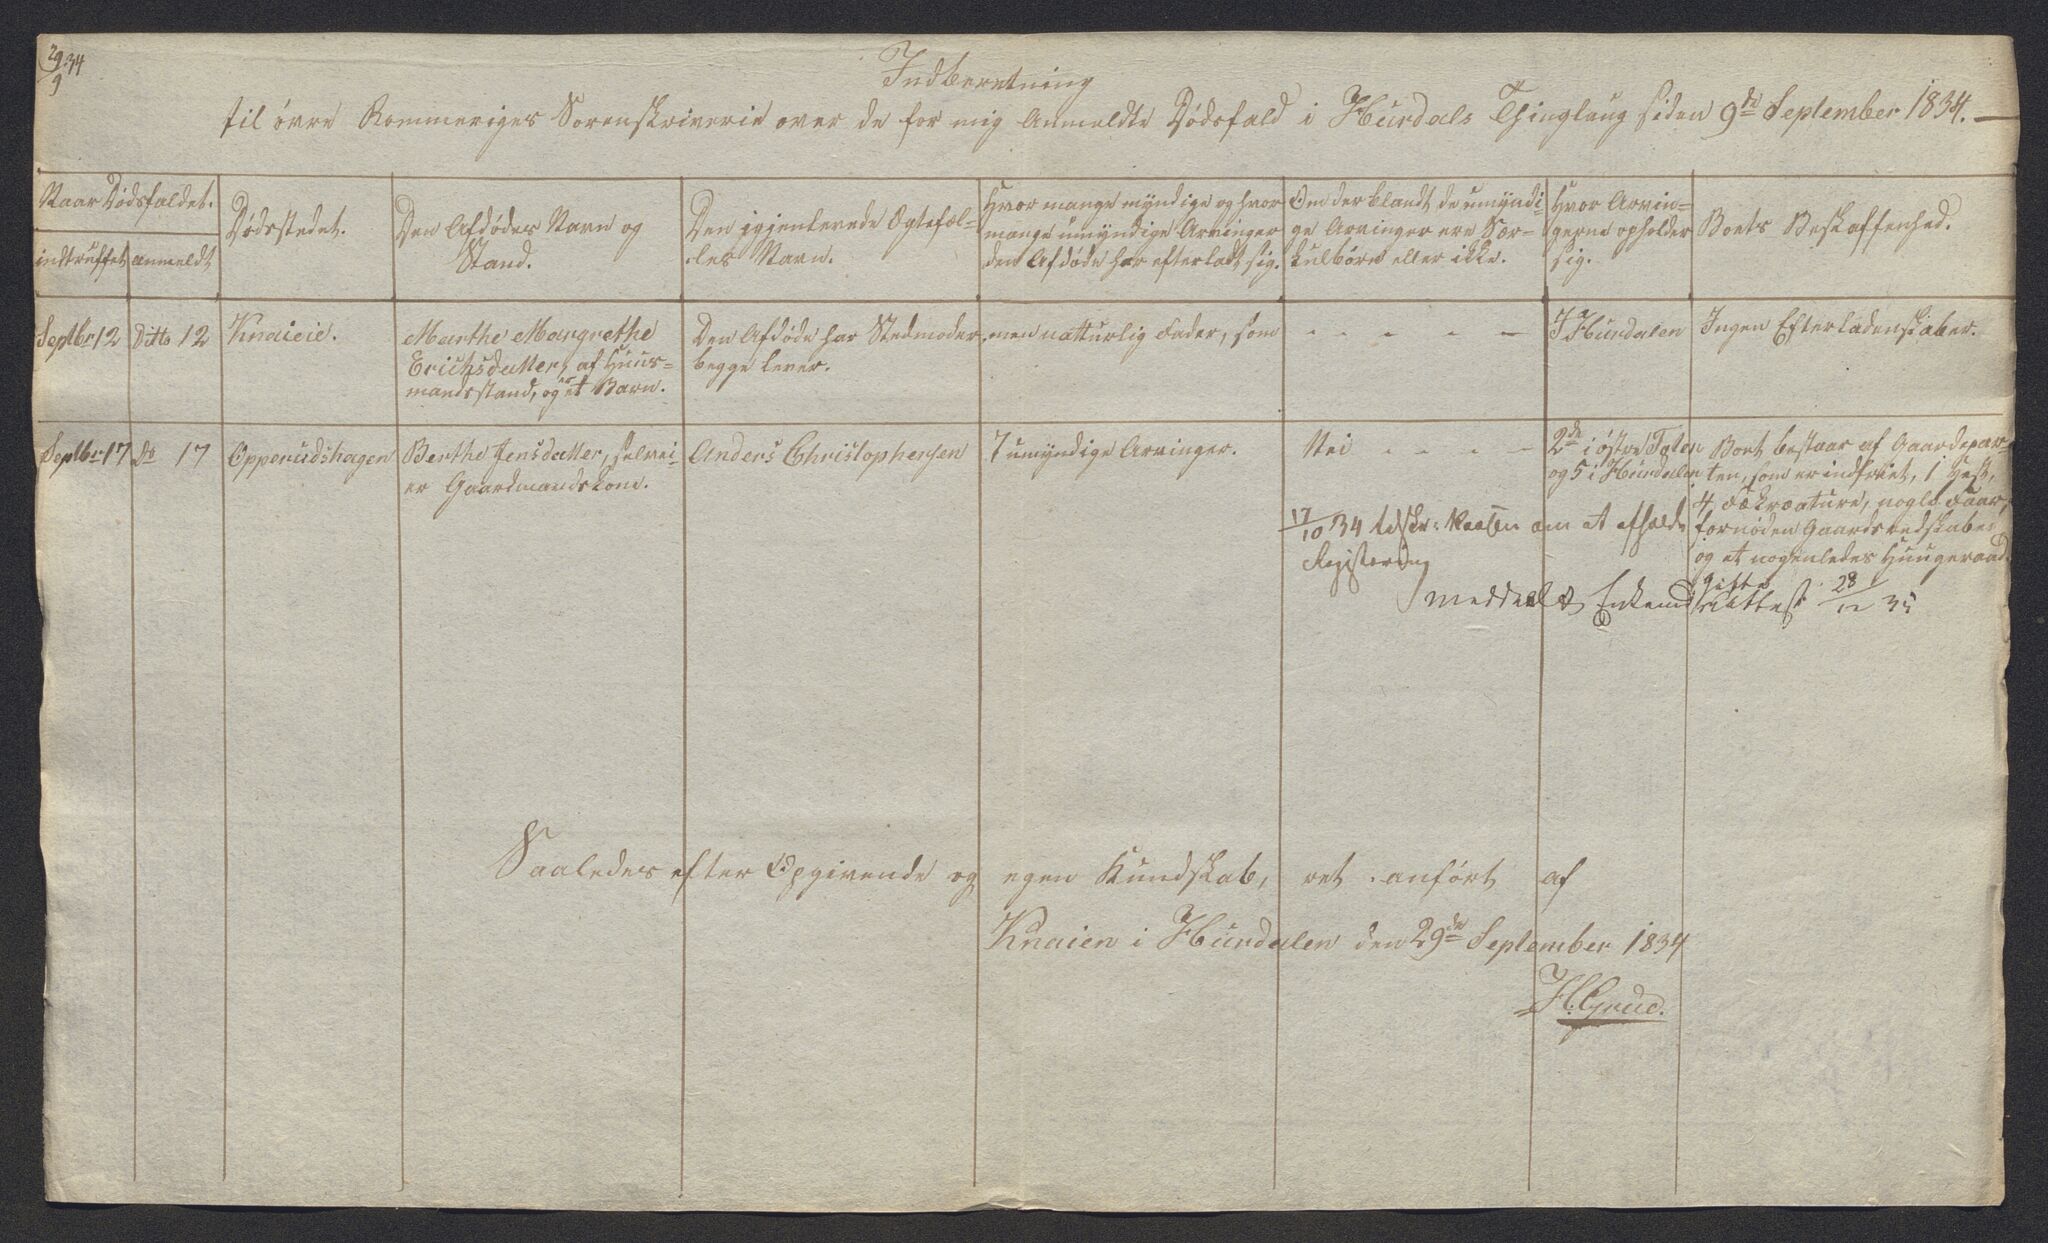 29/9 34
Indberetning
til øvre Rommeriges Sorenskriverie over de for mig Anmeldte Dødsfald i Hurdals Thinglaug siden 9de September 1834.
Naar Dødsfaldet.
indtruffet
anmeldt
Dødsstedet.
Den Afdødes Navn og
Stand.
Den igjenlevede Egtefæl-
les Navn.
Hvor mange myndige og hvor
mange umyndige Arvinger
den Afdøde har efterladt sig.
Om der blandt de umyndi-
ge Arvinger ere Sær-
kulbørn eller ikke.
Hvor Arvin-
gerne opholder
sig.
Boets Beskaffenhed.
Septbr 12
Ditto 12
Knaieie.
Marthe Margrethe
Erichsdatter, af Huus-
mandsstand, og er et Barn.
Den Afdøde har Stedmoder,
begge lever.
men naturlig Fader, som
- - - - -
I Hurdalen
Ingen Efterladenskaber.
Septbr 17
Do 17
Opperudshagen
Berthe Jensdatter, selvei-
er Gaardmandskone.
Anders Christophersen
7 umyndige Arvinger.
Nei - - - -
2de i østre Toten
og 5 i Hurdalen
Boet bestaar af Gaardepar-
ten, som er indfriet, 1 Hest,
4 Fækreature, nogle Faar,
fornøden Gaardsredskaber
og et nogenledes Huusgeraad.
17/10 34 tilskr: om at afholde
Registering
meddeelt Enkemd gifte
attest 28/12 35
Saaledes efter Opgivende og egen Kundskab, ret anført af
Knaien i Hurdalen den 29de September 1834
H. Grue.